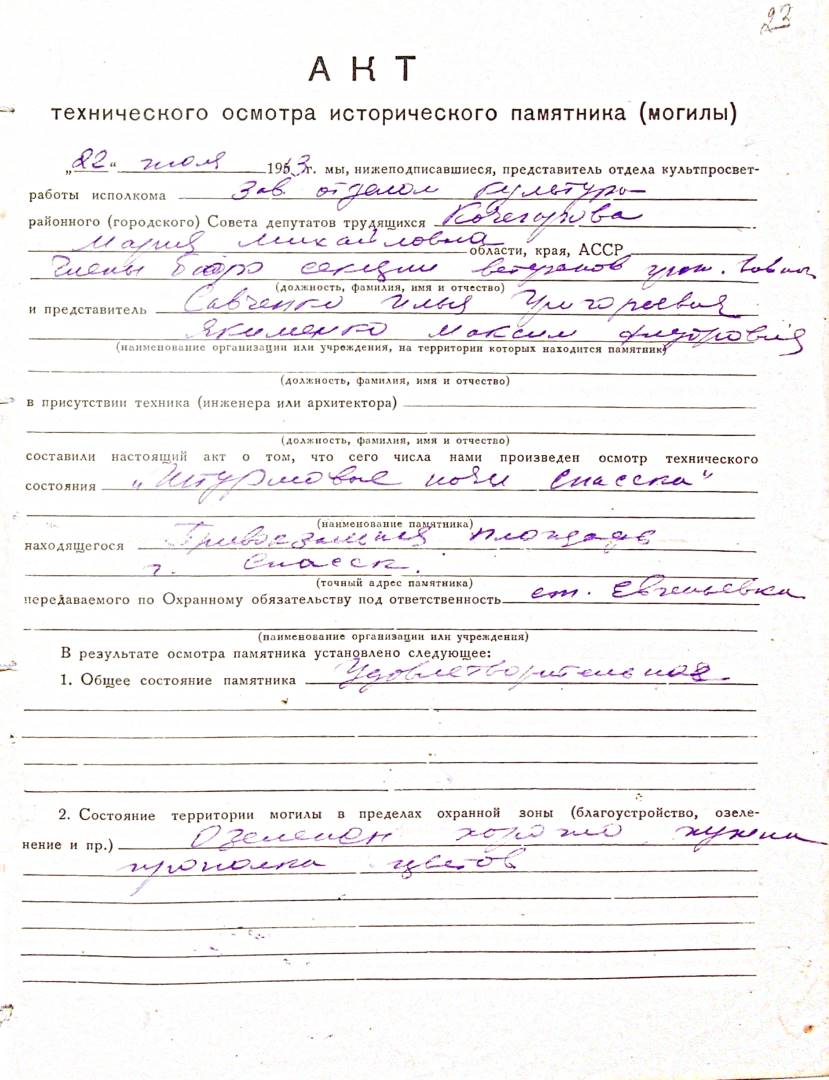 22
АКТ
технического осмотра исторического памятника (могилы)
„22“ июля 1963г. мы, нижеподписавшиеся, представитель отдела культпросвет-
работы исполкома Зав отделом культуры
районного (городского) Совета депутатов трудящихся Кочегарова
Мария Михайловна области, края, АССР
Члены бюро секции ветеранов
(должность, фамилия, имя и отчество)
и представитель Савченко Илья Григорьевич
Якименко Максим Федорович
(наименование организации или учреждения, на территории которых находится памятник)
(должность, фамилия, имя и отчество)
в присутствии техника (инженера или архитектора)
(должность, фамилия, имя и отчество)
составили настоящий акт о том, что сего числа нами произведен осмотр технического
состояния „Штурмовые ночи Спасска"
(наименование памятника)
находящегося Привокзальная площадь
г. Спасск.
(точный адрес памятника)
передаваемого по Охранному обязательству под ответственность ст. Евгеньевка
(наименование организации или учреждения)
В результате осмотра памятника установлено следующее:
1. Общее состояние памятника Удовлетворительное
2. Состояние территории могилы в пределах охранной зоны (благоустройство, озеле-
нение и пр.) Озеленен хорошо нужена
прополка цветов